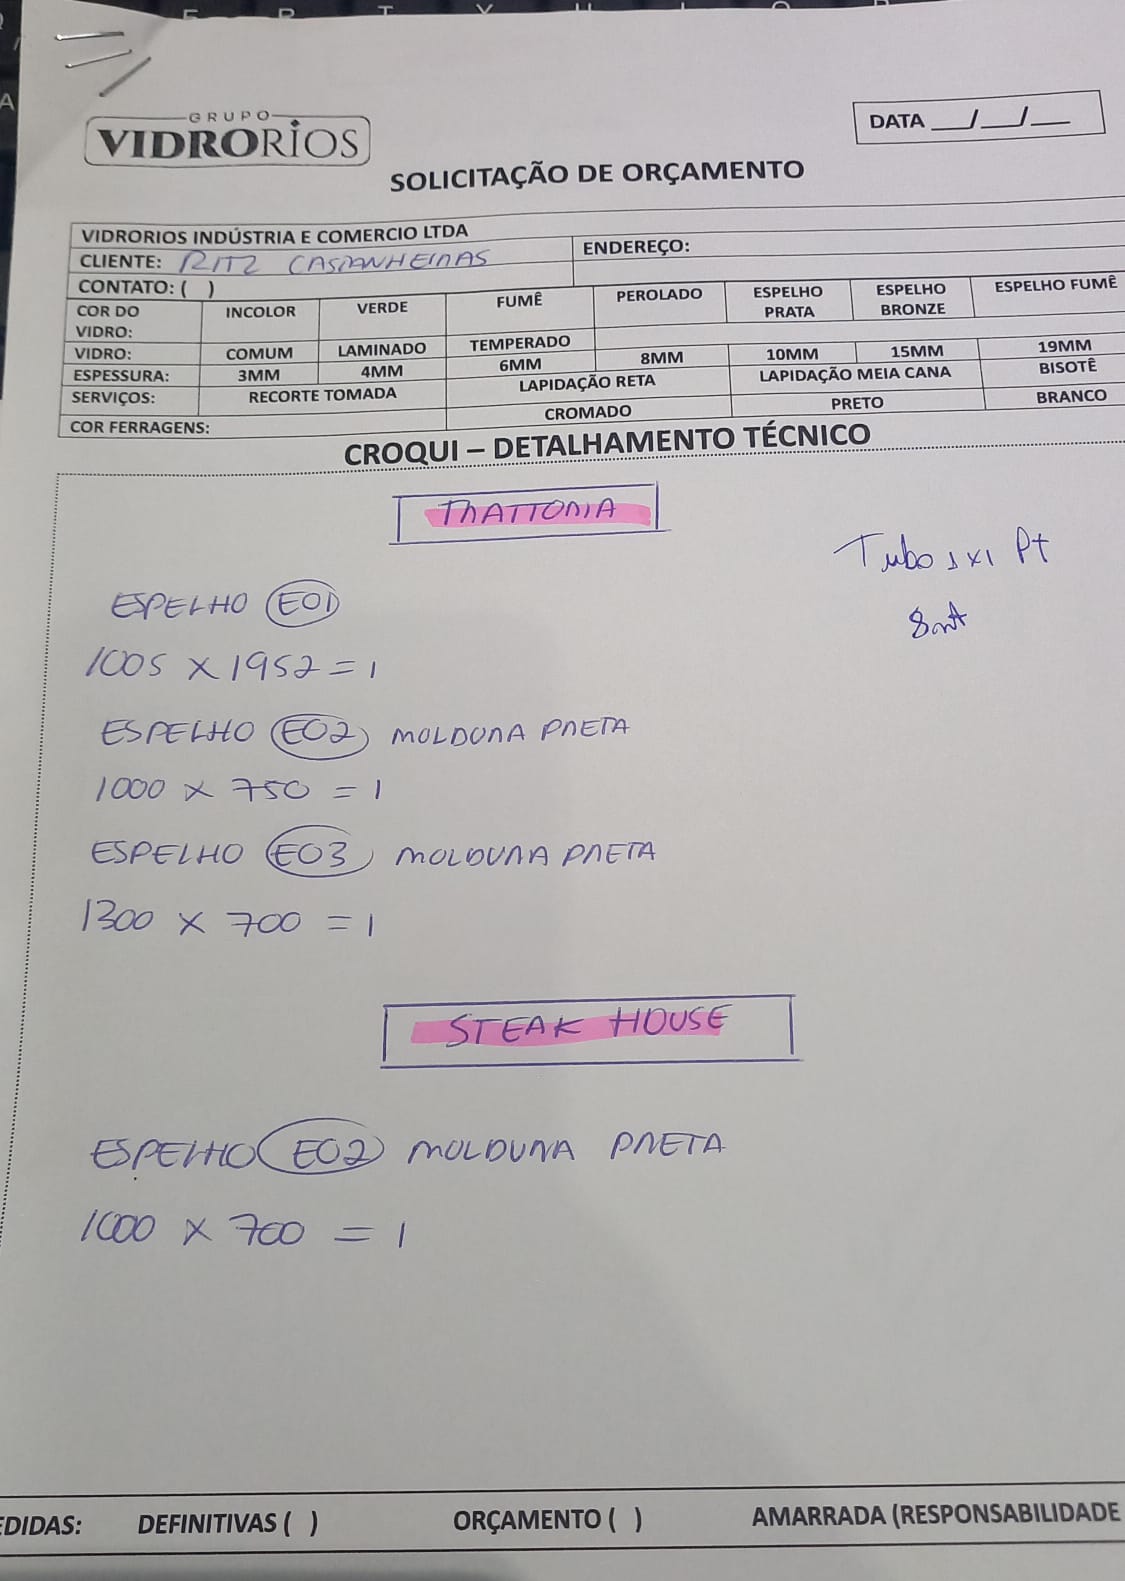 GRUPO
VIDRORIOS
DATA __/__/__
SOLICITAÇÃO DE ORÇAMENTO
VIDRORIOS INDÚSTRIA E COMERCIO LTDA
CLIENTE: RITZ CASTANHEIRAS ENDEREÇO:
CONTATO: ( )
COR DO VIDRO: INCOLOR VERDE FUMÊ PEROLADO ESPELHO PRATA ESPELHO BRONZE ESPELHO FUMÊ
VIDRO: COMUM LAMINADO TEMPERADO
ESPESSURA: 3MM 4MM 6MM 8MM 10MM 15MM 19MM
SERVIÇOS: RECORTE TOMADA LAPIDAÇÃO RETA LAPIDAÇÃO MEIA CANA BISOTÊ
COR FERRAGENS: CROMADO PRETO BRANCO
CROQUI – DETALHAMENTO TÉCNICO
TRATTORIA
Tubo 1x1 Pt
ESPELHO E01
1005 x 1952 = 1
ESPELHO E02 MOLDURA PRETA
1000 x 750 = 1
ESPELHO E03 MOLDURA PRETA
1300 x 700 = 1
STEAK HOUSE
ESPELHO E02 MOLDURA PRETA
1000 x 700 = 1
EDIDAS: DEFINITIVAS ( ) ORÇAMENTO ( ) AMARRADA (RESPONSABILIDADE